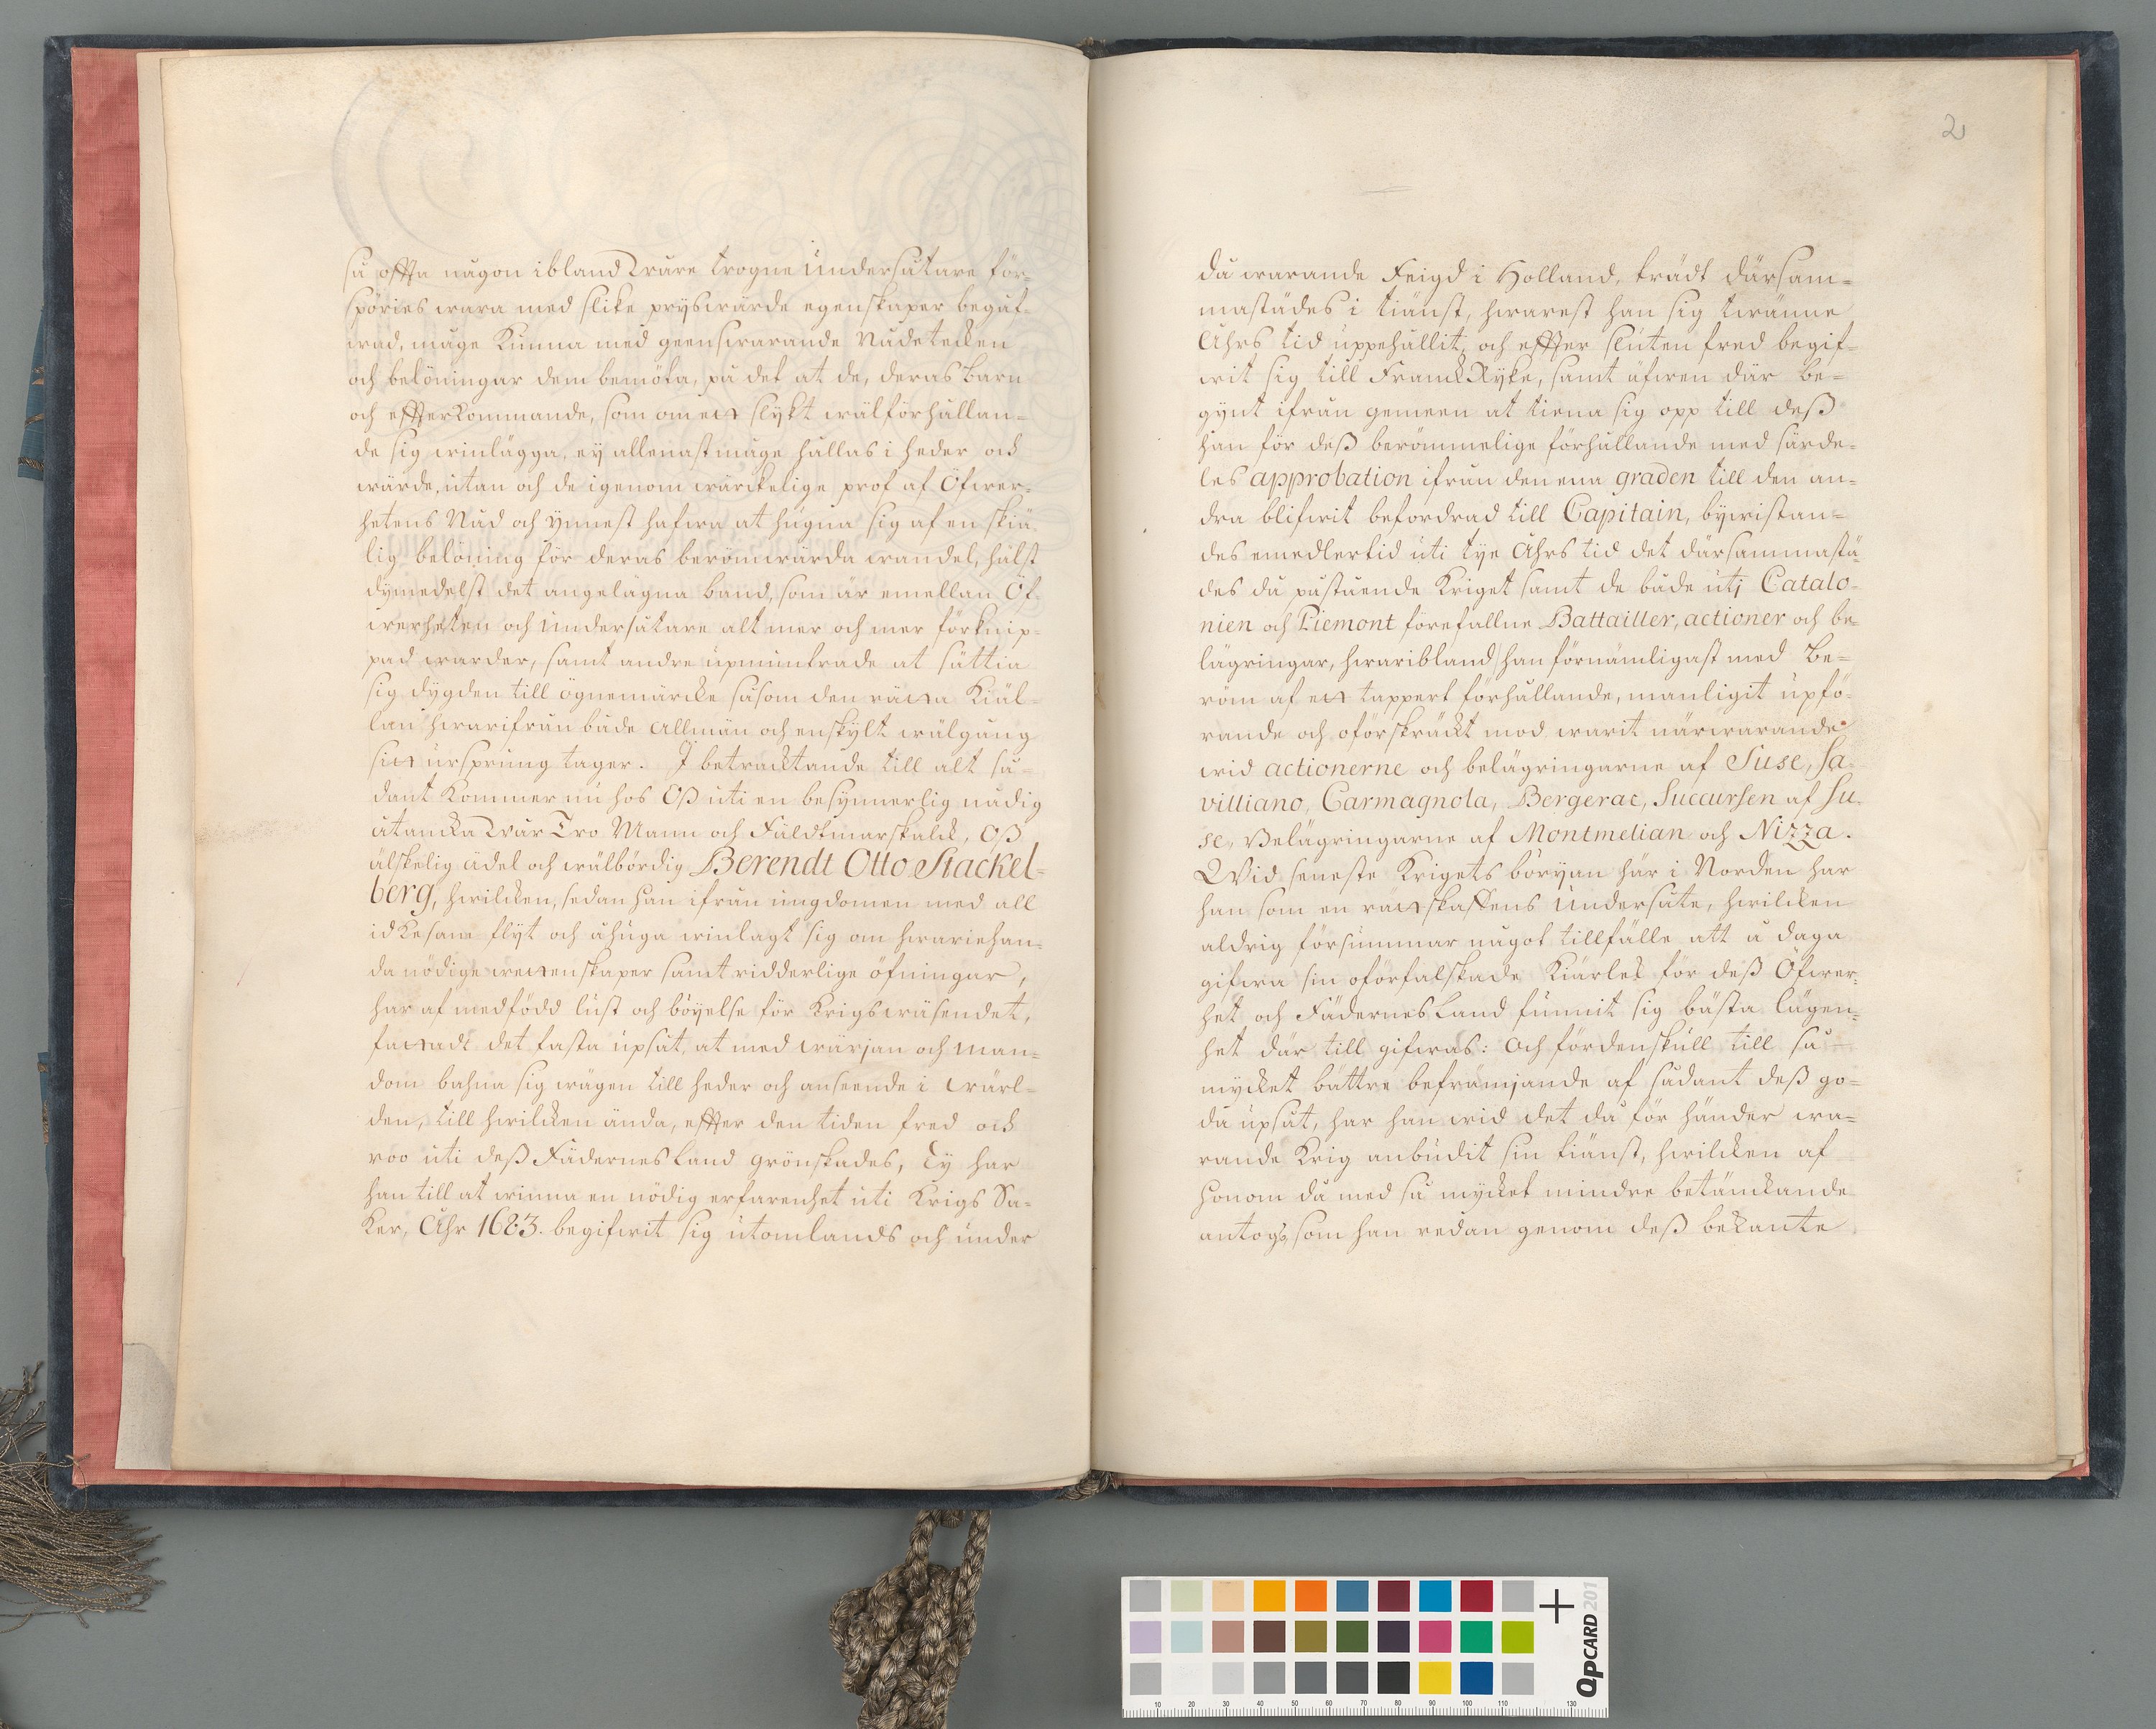 så offta någon ibland Wåre trogne undersåtare för-
spöries wara med slike pryswärde egenskaper begåf-
wad, måge kunna med geenswarande Nådetecken
och belöningar dem bemöta, på det at de, deras barn
och effterkommande, som om ett slykt wälförhållan-
de sig winlägga, ey allenast måge hållas i heder och
wärde, utan och de igenom wärckelige prof af Öfwer-
hetens Nåd och ynnest hafwa at hugna sig af en skiä-
lig belöning för deras berömwärda wandel, hälst
dymedelst det angelägna band, som är emellan Öf-
werheten och undersåtare alt mer och mer förknip-
pad warder, samt andre upmuntrade at sättia
sig dygden till ögnemärcke såsom den rätta kiäl-
lan hwarifrån både allmän och enskylt wälgång
sitt ursprung tager. I betracktande till alt så-
dant kommer nu hos Oß uti en besynnerlig nådig
åtancka Wår Tro Mann och Fäldtmarskalck, Oß
älskelig ädel och wälbördig Berendt Otto Stackel-
berg, hwilcken, sedan han ifrån ungdomen med all
idkesam flyt och åhuga winlagt sig om hwariehan-
da nödige wettenskaper samt ridderlige öfningar,
har af medfödd lust och böyelse för Krigswäsendet,
fattadt det fasta upsåt, at med wärjan och man-
dom bahna sig wägen till heder och anseende i wärl-
den, till hwilcken ända, effter den tiden fred och
roo uti deß Fädernesland grönskades, Ty har
han till at winna en nödig erfarenhet uti Krigs Sa-
ker, Åhr 1683. begifwit sig utomlands och under
2
då warande Feigd i Holland, trädt därsam-
mastädes i tiänst, hwarest han sig twänne
Åhrs tid uppehållit, och effter sluten fred begif-
wit sig till FranckRyke, samt äfwen där be-
gynt ifrån gemeen at tiena sig opp till deß
han för deß berömmelige förhållande med särde-
les approbation ifrån den ena graden till den an-
dra blifwit befordrad till Capitain, bywistan-
des emedlertid uti tye Åhrs tid det därsammastä-
des då påstående Kriget samt de både utj Catalo-
nien och Piemont förefallne Battailler, actioner och be-
lägringar, hwaribland han förnämligast med Be-
röm af ett tappert förhållande, manligit upfö-
rande och oförskräckt mod warit närwarande
wid actionerne och belägringarne af Suse, Sa-
villiano, Carmagnola, Bergerac, Succursen af Su-
se, Belägringarne af Montmelian och Nizza.
Wid seneste Krigets böryan här i Norden har
han som en rättskaffens undersåte, hwilcken
aldrig försummar något tillfälle att å daga
gifwa sin oförfalskade Kiärlek för deß Öfwer-
het och Fädernesland funnit sig bästa lägen-
het där till gifwas: Och fördenskull till så
mycket bättre befrämjande af sådant deß go-
da upsåt, har han wid det då för händer wa-
rande Krig anbudit sin tiänst, hwilcken af
Honom då med så mycket mindre betänckande
antogs, som han redan genom deß bekante
QPCARD 201
10 20 30 40 50 60 70 80 90 100 110 130